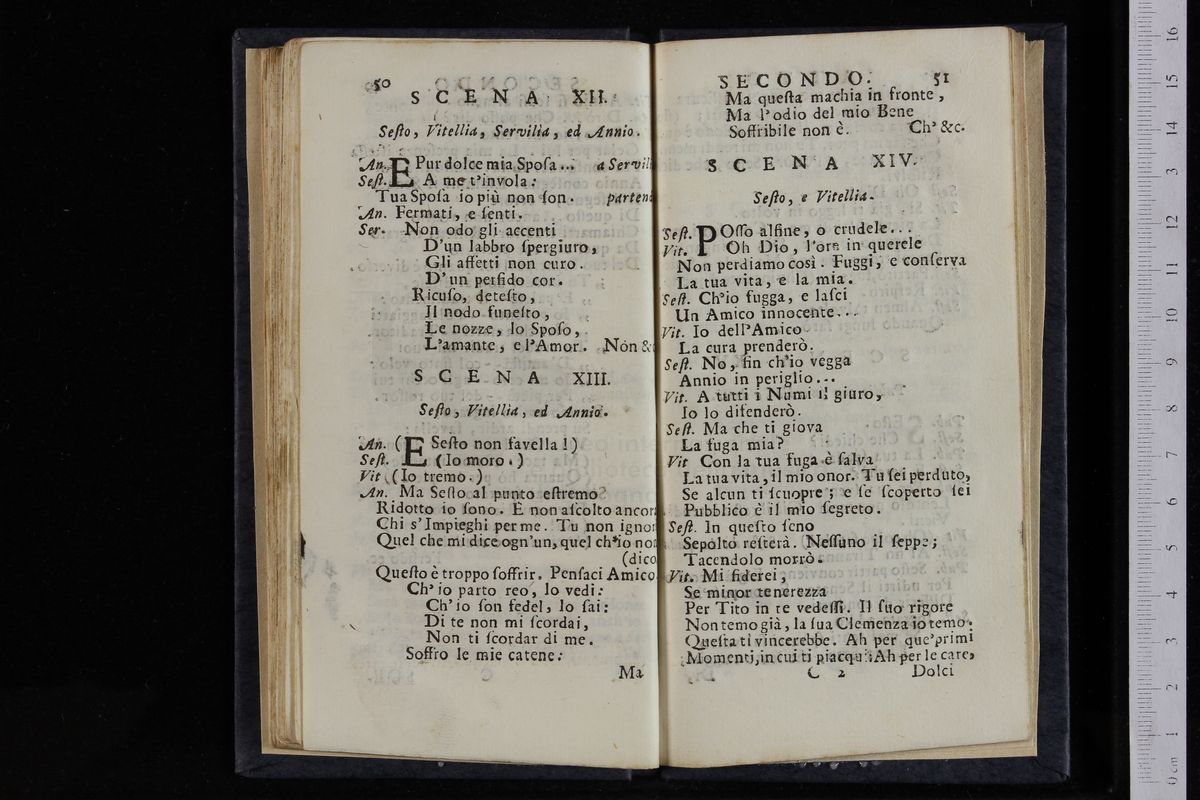 50
SCENA XII.
Sesto, Vitellia, Servilia, ed Annio.
An. E Pur dolce mia Sposa... a Servili
Sest. A me t'invola:
Tua Sposa io più non son. parten
An. Fermati, e senti.
Ser. Non odo gli accenti
D'un labbro spergiuro,
Gli affetti non curo.
D'un perfido cor.
Ricuso, detesto,
Il nodo funesto,
Le nozze, lo Sposo,
L'amante, e l'Amor. Non &
SCENA XIII.
Sesto, Vitellia, ed Annio.
An. (E Sesto non favella!)
Sest. (Io moro.)
Vit (Io tremo.)
An. Ma Sesto al punto estremo
Ridotto io sono. E non ascolto ancor
Chi s'Impieghi per me. Tu non ignor
Quel che mi dice ogn'un, quel ch'io no
(dico
Questo è troppo soffrir. Pensaci Amico
Ch'io parto reo, lo vedi:
Ch'io son fedel, lo sai:
Di te non mi scordai,
Non ti scordar di me.
Soffro le mie catene:
Ma
SECONDO. 51
Ma questa machia in fronte,
Ma l'odio del mio Bene
Soffribile non è. Ch' &c.
SCENA XIV.
Sesto, e Vitellia.
Sest. POsso alfine, o crudele...
Vit. Oh Dio, l'ore in querele
Non perdiamo così. Fuggi, e conserva
La tua vita, e la mia.
Sest. Ch'io fugga, e lasci
Un Amico innocente...
Vit. Io dell'Amico
La cura prenderò.
Sest. No, fin ch'io vegga
Annio in periglio...
Vit. A tutti i Numi il giuro,
Io lo difenderò.
Sest. Ma che ti giova
La fuga mia?
Vit Con la tua fuga è salva
La tua vita, il mio onor. Tu sei perduto,
Se alcun ti scuopre; e se scoperto sei
Pubblico è il mio segreto.
Sest. In questo seno
Sepolto resterà. Nessuno il seppe;
Tacendolo morrò.
Vit. Mi fiderei,
Se minor tenerezza
Per Tito in te vedessi. Il suo rigore
Non temo già, la sua Clemenza io temo:
Questa ti vincerebbe. Ah per que'primi
Momenti, in cui ti piacqui: Ah per le care,
C 2 Dolci